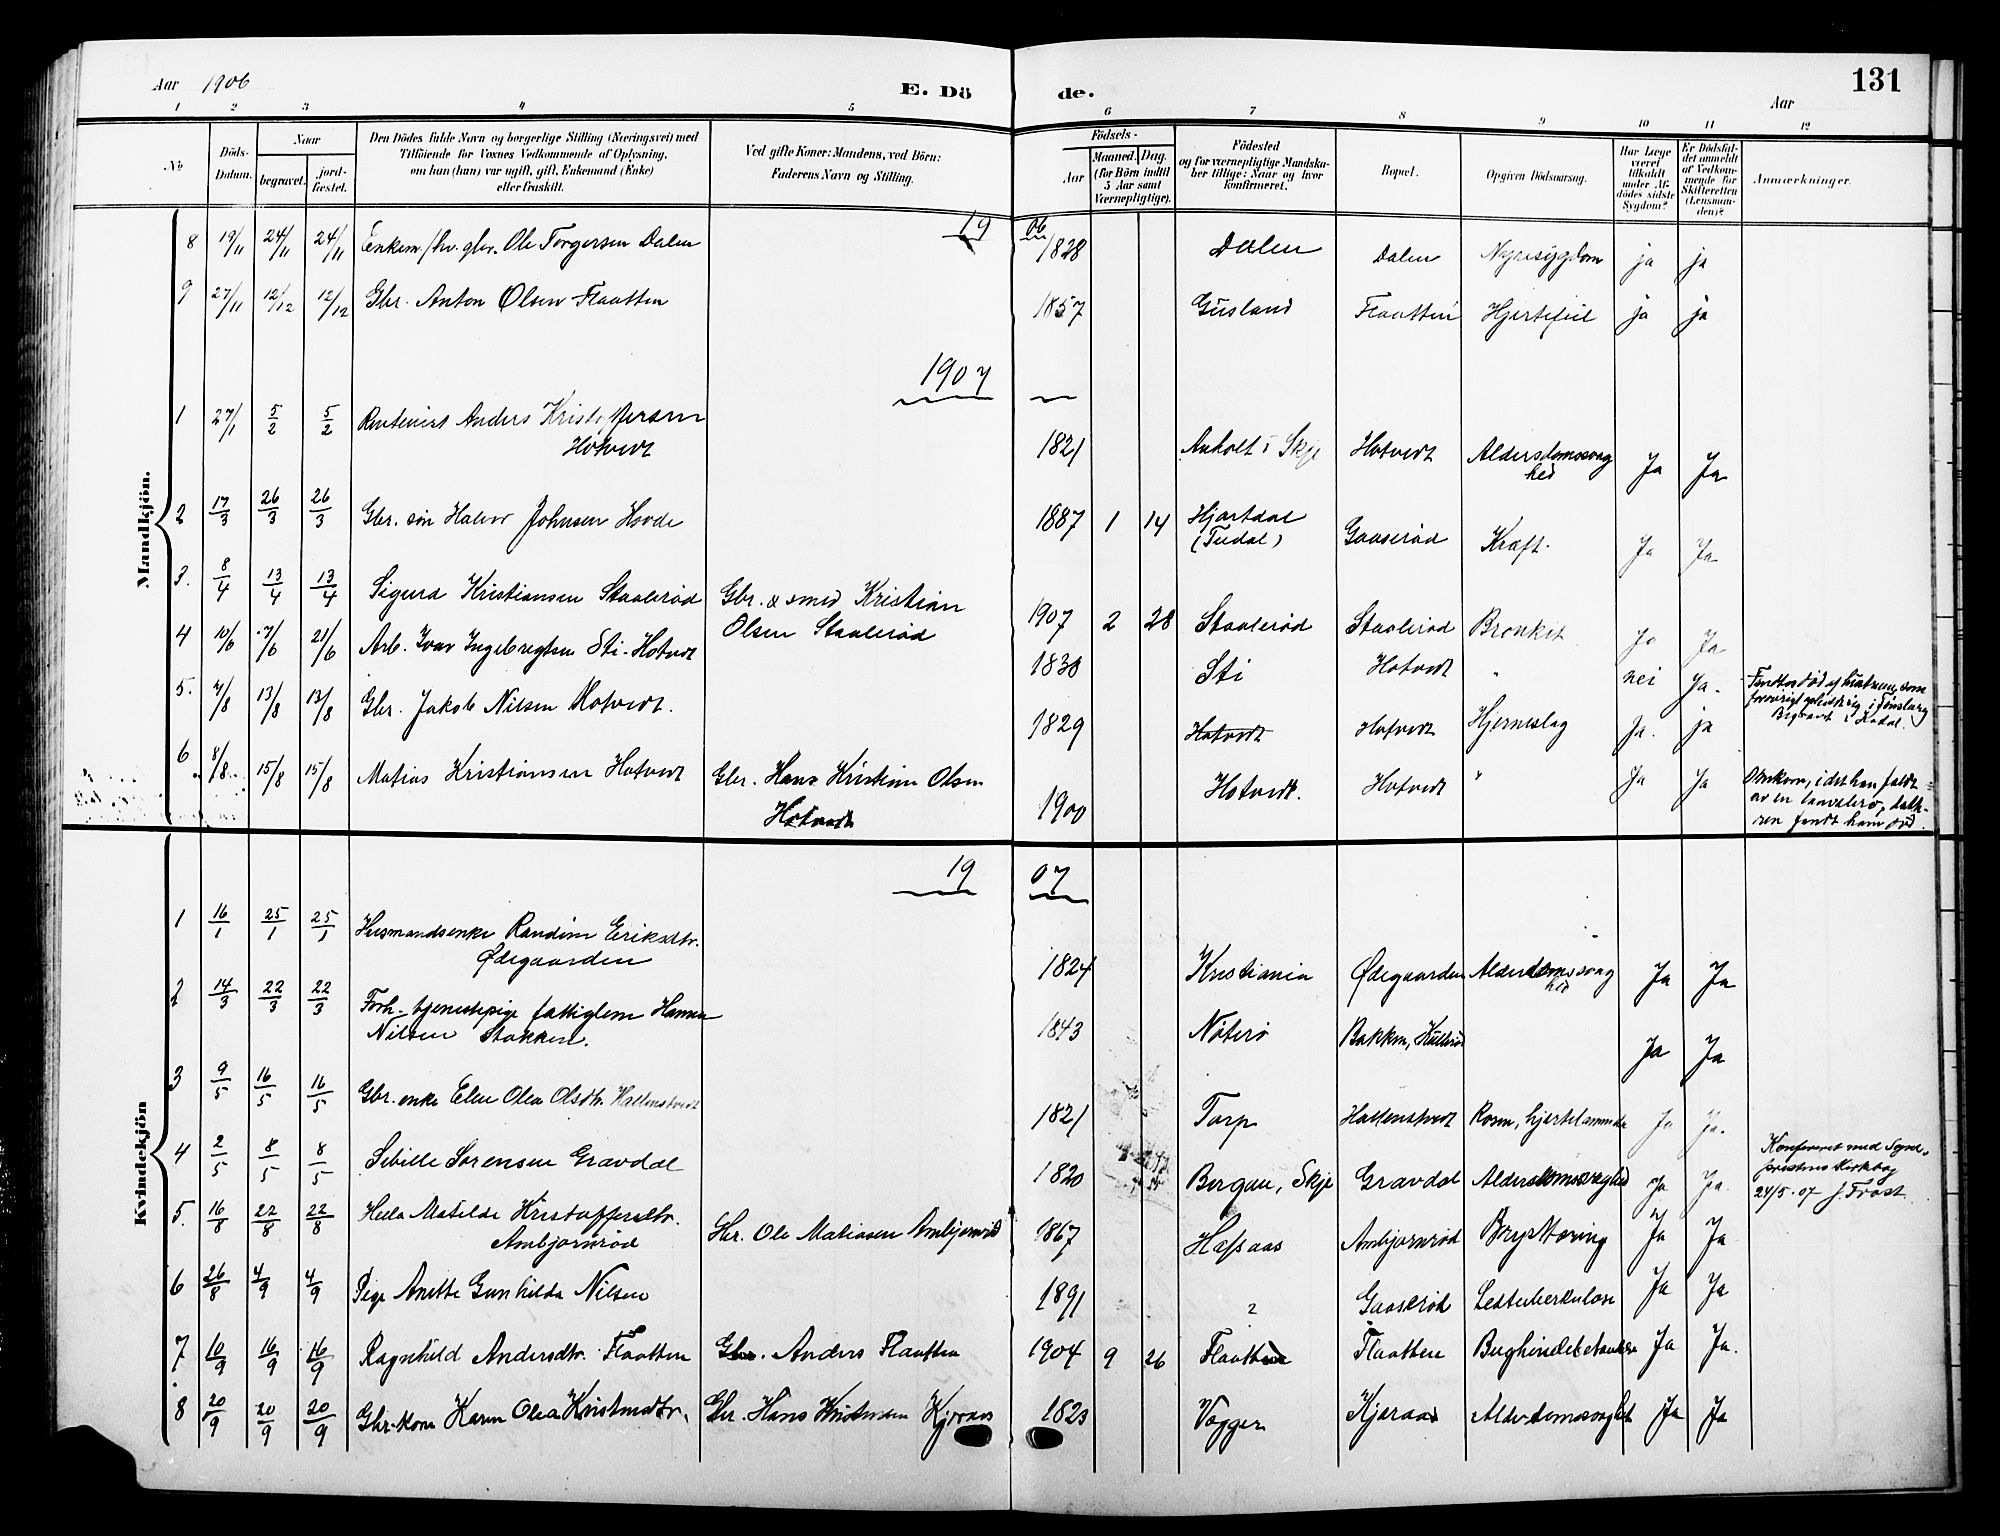 Aar 1906
E. Dö de.
131
Aar
1 2 3 4 5 6 7 8 9 10 11 12
No
Döds-Datum.
Naar
begravet.
jordfæstet.
Den Dödes fulde Navn og borgerlige Stilling (Næringsvei) med
Tilföiende for Voxnes Vedkommende af Oplysning,
om han (hun) var ugift, gift, Enkemand (Enke)
eller fraskilt.
Ved gifte Koner: Mandens, ved Börn:
Faderens Navn og Stilling.
Födsels-
Aar
Maaned. Dag.
(for Börn indtil
5 Aar samt
Værnepligtige).
Födested
og for værnepligtige Mandska-
ber tillige: Naar og hvor
konfirmeret.
Bopæl.
Opgiven Dödsaarsag.
Har Læge
været
tilkaldt
under Af-
dödes sidste
Sygdom?
Er Dödsfal-
det anmeldt
af Vedkom-
mende for
Skifteretten
(Lensman-
den)?
Anmærkninger.
Mandkjön.
1906
8 19/11 24/11 24/11 Enkem. Ole Torgersen Dalen 1828 Dalen Dalen Nyresygdom ja ja
9 27/11 12/12 12/12 Gbr. Anton Olsen Flaatten 1857 Gusland Flaatten Hjertefeil ja ja
1907
1 27/1 5/2 5/2 Rentenist Anders Kristoffersen
Hotvedt 1821 Anholt i Skje Hotvedt Alderdomssvaghed Ja Ja
2 17/3 26/3 26/3 Gbr. søn Halvor Johnsen Hovde 1887 1 14 Hjartdal
(Tudal) Gaaserød Kræft. Ja Ja
3. 8/4 13/4 13/4 Sigurd Kristiansen Staalerød Gbr. & smed Kristian
Olsen Staalerød 1907 2 28 Staalerød Staalerød Bronkit Ja Ja
4 10/6 21/6 Arb. Ivar Ingebregtsen Sti-Hotvedt 1830 Sti Hotvedt " nei Ja.
5. 7/8 13/8 13/8 Gbr. Jakob Nilsen Hotvedt. 1829 Hotvedt Hotvedt Hjerneslag Ja. ja
6 8/8 15/8 15/8 Matias Kristiansen Hotvedt Gbr. Hans Kristian Olsen
Hotvedt 1900 Hotvedt. Hotvedt " Ja Ja Omkom, idet han faldt
av en
fandt ham død.
Kvindekjön
1907
1 16/1 25/1 25/1 Husmandsenke Randine Eriksdtr.
Ødegaarden 1824 Kristiania Ødegaarden Alderdomssvaghed Ja Ja
2 14/3 22/3 22/3 Forh. tjenestepige fattiglem Hanna
Nilsen Stokken. 1843 Nøterø Bakken, Ja Ja
3 9/5 16/5 16/5 Gbr. enke Elen Olea Olsdtr. Hallenstvedt 1821 Torp Hallenstvedt Rosen, hjertelammelse Ja Ja.
4 2/5 8/5 8/5 Sibille Sørensen Gravdal 1820 Bergan, Skje Gravdal Alderdomssvaghed Ja Ja. Konfereret med Sogne-
prestens Kirkebog
24/5. 07 J. Frost
5. 16/8 22/8 22/8 Hella Matilde Kristoffersdtr.
Ambjørnrød Gbr. Ole Matiasen Ambjørnrød 1867 Hafsaas Ambjørnrød Brysttæring Ja Ja
6 26/8 4/9 4/9 Pige Anette Gunhilda Nilsen 1891 ? Gaaserød Ledtuberkulose Ja Ja
7 10/9 16/9 16/9 Ragnhild Andersdtr. Flaatten Gbr. Anders Flaatten 1904 9 26 Flaatten Flaatten Bughindebetændelse Ja Ja.
8 20/9 20/9 20/9 Gbr. kone Karen Olea Kristensdtr. Gbr. Hans Kristensen Kjæraas 1823 Vegger Kjæraas Alderdomssvaghet Ja Ja